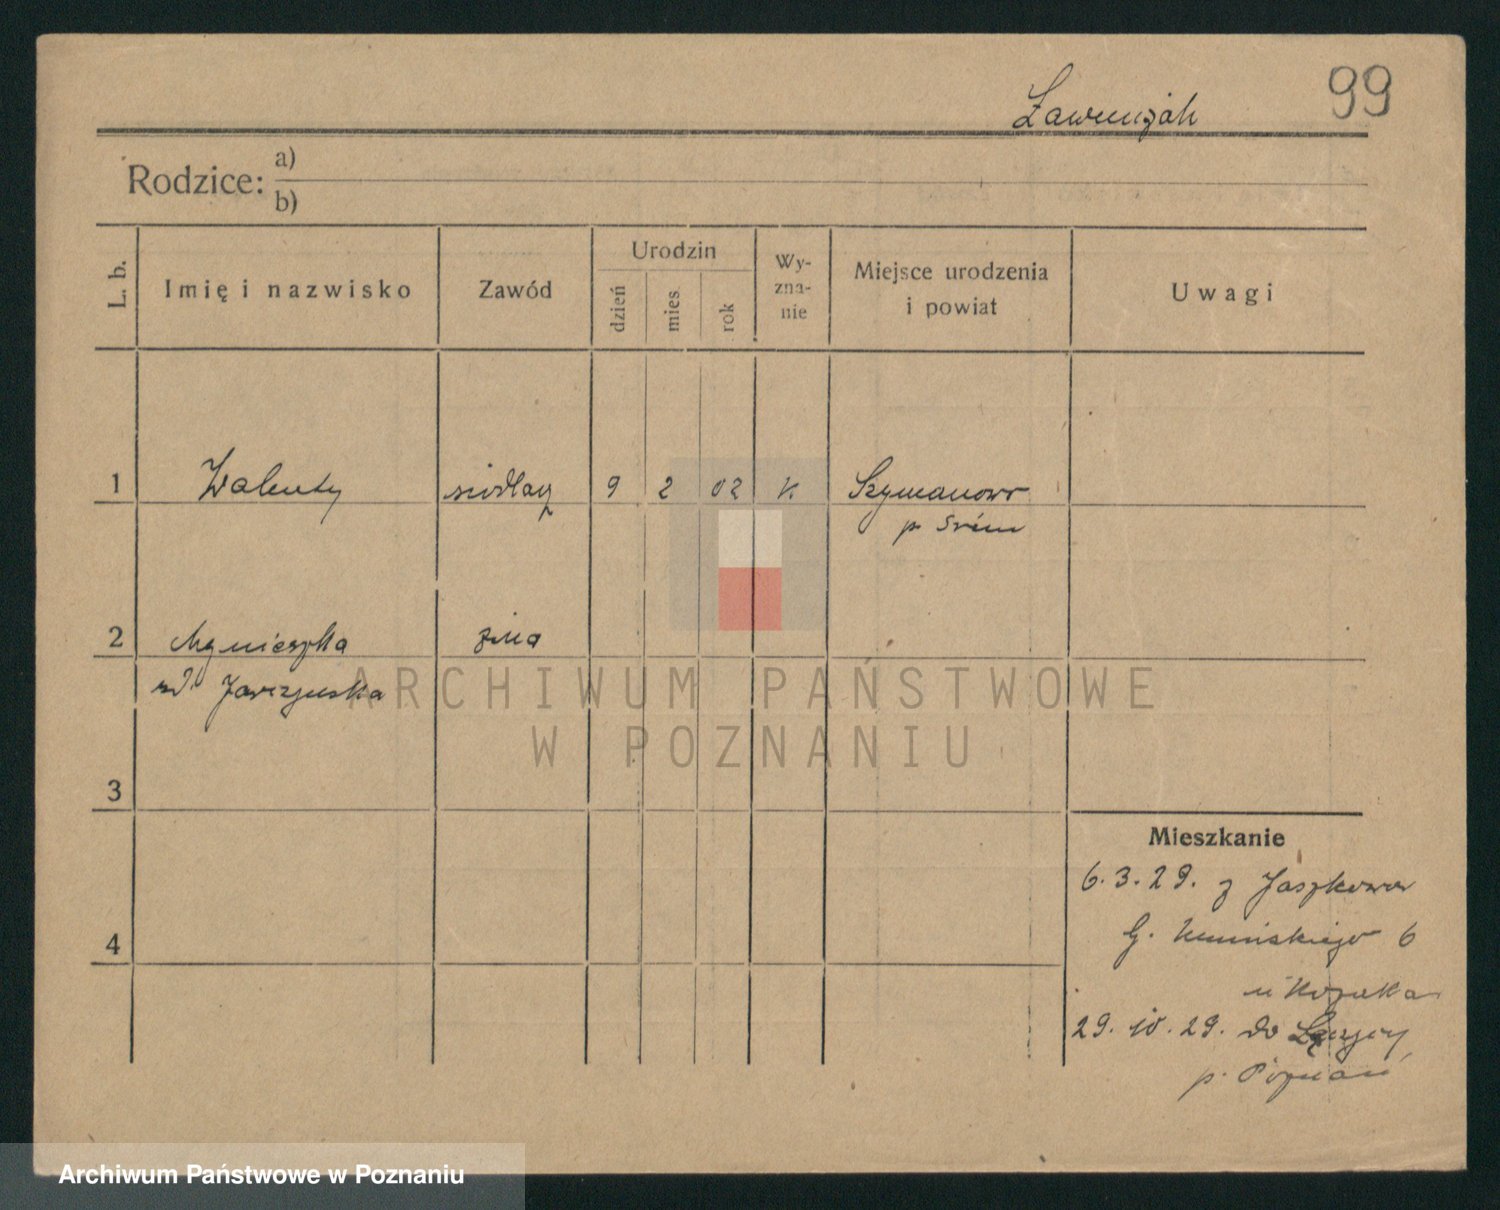 99
Rodzice: a)
b)
L. b.
Imię i nazwisko
Zawód
Urodzin
dzień
mies
rok
Wy-
zna-
nie
Miejsce urodzenia
i powiat
Uwagi
1 Walenty siodlarz 9 2 02 K Szymanowo
p. Śrem
2 Agnieszka żona
3
4
Mieszkanie
6. 3. 29. z Jaszkowa
6
29. 10. 29. do
p. Poznań
ARCHIWUM PAŃSTWOWE
W POZNANIU
Archiwum Państwowe w Poznaniu